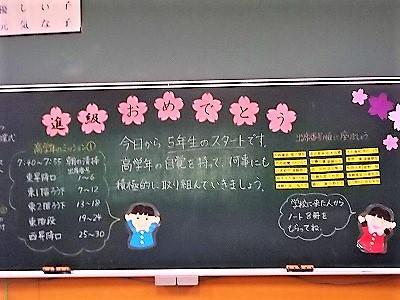 優しい子
元気な子
進級おめでとう
高学年のミッション①
7:40〜7:55 朝の清掃
出席番号
東昇降口 1〜6
東1階ろう下 7〜12
東2階ろう下 13〜18
東階段 19〜24
西昇降口 25〜30
今日から5年生のスタートです。
高学年の自覚を持って、何事にも
積極的に取り組んでいきましょう。
学校に来た人から
ノート8冊を
もらってね。